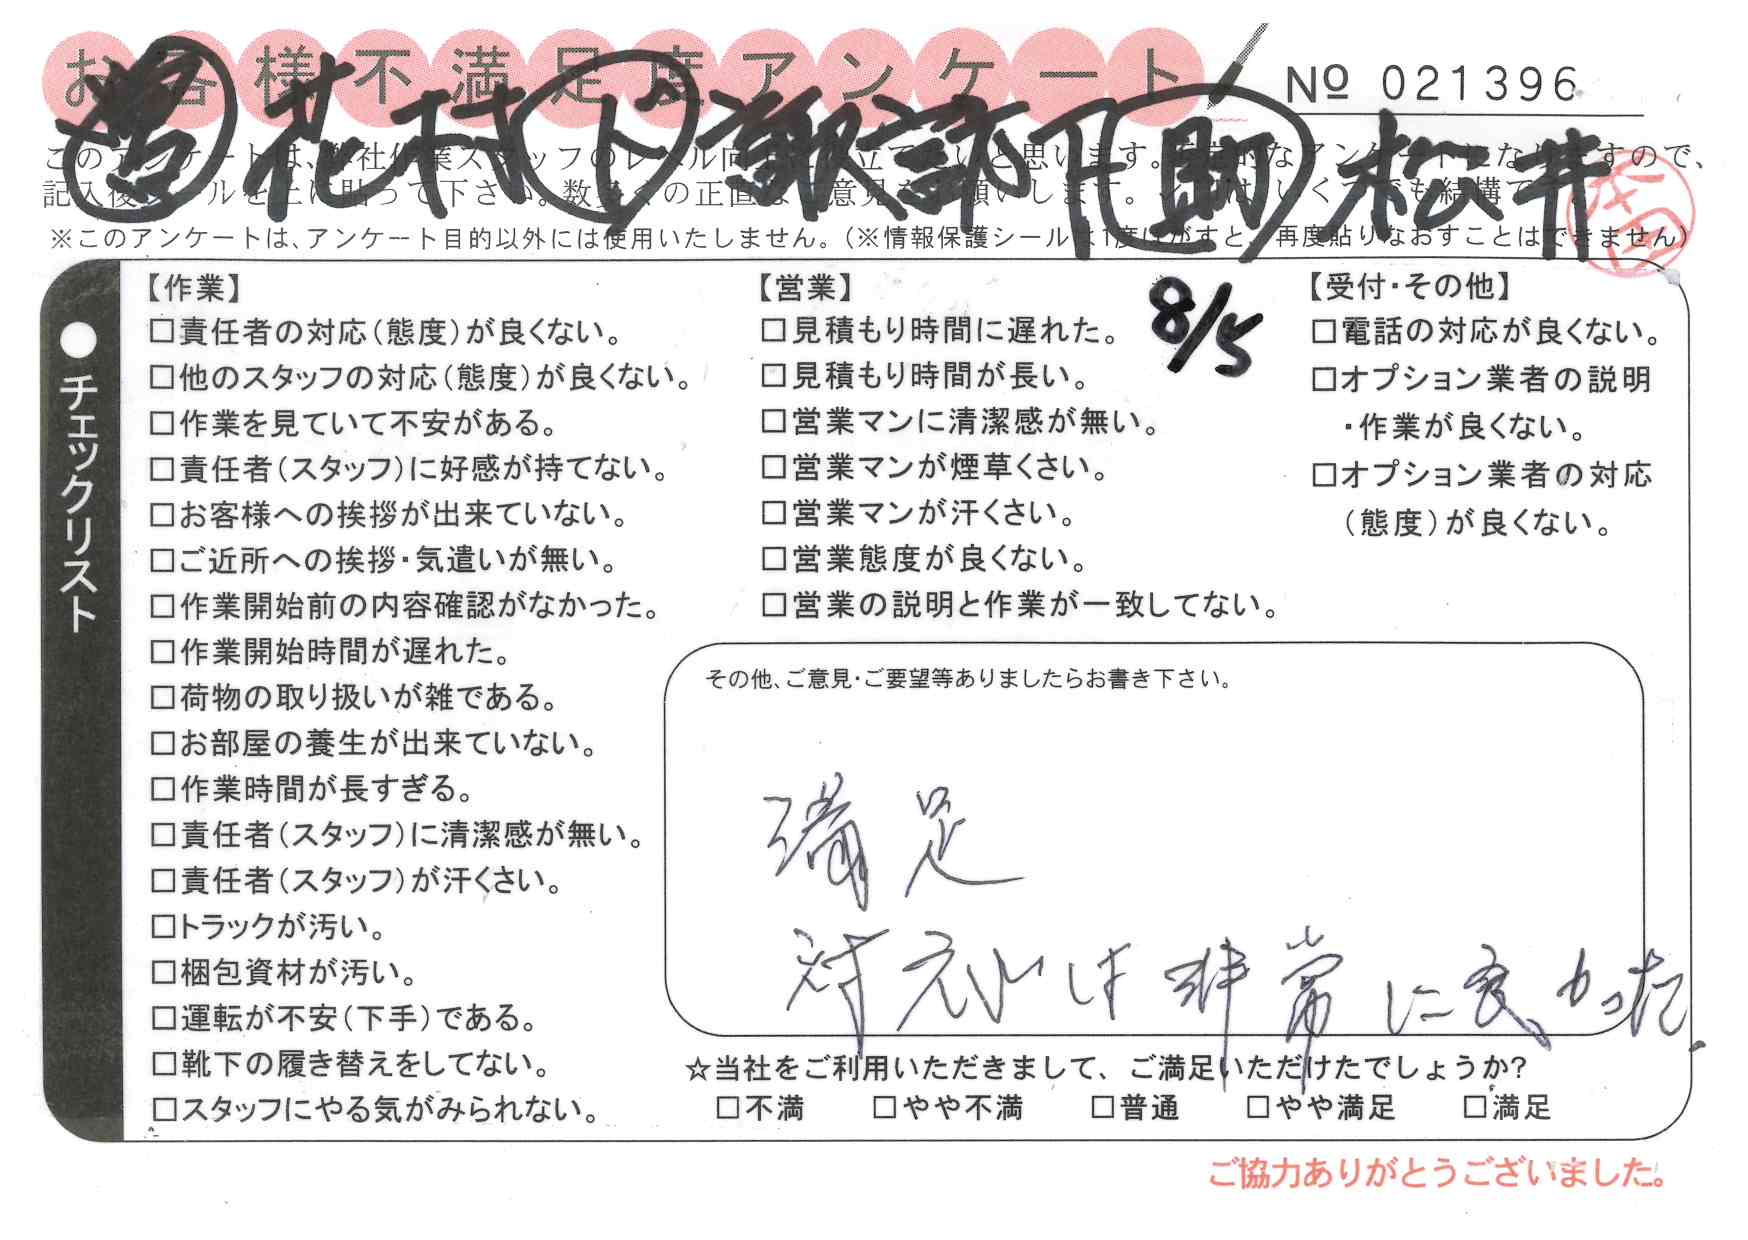 お客様不満足度アンケート
№ 021396
営 花村 ト 諏訪 下 助 松井
このアンケートは、弊社作業スタッフのレベル向上に役立てたいと思います。
記入後シールを上に貼って下さい。数多くの正直なご意見をお願いします。いくつでも結構です。
※このアンケートは、アンケート目的以外には使用いたしません。（※情報保護シールは1度はがすと、再度貼りなおすことはできません）
●チェックリスト
【作業】
□責任者の対応（態度）が良くない。
□他のスタッフの対応（態度）が良くない。
□作業を見ていて不安がある。
□責任者（スタッフ）に好感が持てない。
□お客様への挨拶が出来ていない。
□ご近所への挨拶・気遣いが無い。
□作業開始前の内容確認がなかった。
□作業開始時間が遅れた。
□荷物の取り扱いが雑である。
□お部屋の養生が出来ていない。
□作業時間が長すぎる。
□責任者（スタッフ）に清潔感が無い。
□責任者（スタッフ）が汗くさい。
□トラックが汚い。
□梱包資材が汚い。
□運転が不安（下手）である。
□靴下の履き替えをしてない。
□スタッフにやる気がみられない。
【営業】
8/5
□見積もり時間に遅れた。
□見積もり時間が長い。
□営業マンに清潔感が無い。
□営業マンが煙草くさい。
□営業マンが汗くさい。
□営業態度が良くない。
□営業の説明と作業が一致してない。
【受付・その他】
□電話の対応が良くない。
□オプション業者の説明
・作業が良くない。
□オプション業者の対応
（態度）が良くない。
その他、ご意見・ご要望等ありましたらお書き下さい。
満足
対応は非常に良かった。
☆当社をご利用いただきまして、ご満足いただけたでしょうか？
□不満 □やや不満 □普通 □やや満足 □満足
ご協力ありがとうございました。